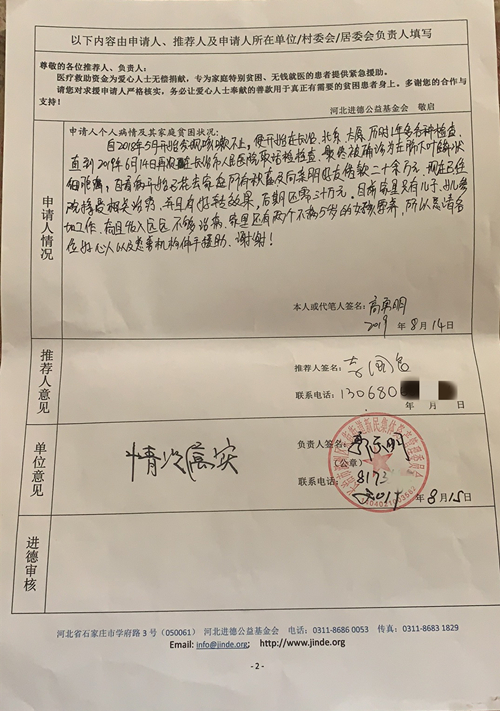 以下内容由申请人、推荐人及申请人所在单位/村委会/居委会负责人填写
尊敬的各位推荐人、负责人：
医疗救助资金为爱心人士无偿捐献，专为家庭特别贫困、无钱就医的患者提供紧急援助。
请您对求援申请人严格核实，务必让爱心人士奉献的善款用于真正有需要的贫困患者身上。多谢您的合作与
支持！
河北进德公益基金会 敬启
申请人情况
申请人个人病情及其家庭贫困状况：
自2018年5月开始发现咳嗽不止，便开始在长治、北京、太原历时1年多各种检查
直到2019年6月14日再次在长治市人民医院取活检检查，最终被确诊为左肺下叶鳞状
细胞癌，自看病开始已花去家庭所有积蓄及向亲朋好友借款二十余万元，现在已住
院接受相关治疗，并且有好转效果，后期还需三十万元，目前家里只有儿子、儿媳
加工作，每月收入区区不够治病，家里还有两个不满5岁的女孩需养，所以恳请各
位好心人以及慈善机构伸手援助、谢谢！
本人或代笔人签名：高
2019 年 8 月 14 日
推荐人意见
推荐人签名：
联系电话：130680
年 月 日
单位意见
情况属实
负责人签名：
（公章）
联系电话：8173
2019 年 8 月 15 日
进德审核
河北省石家庄市学府路 3 号（050061） 河北进德公益基金会 电话：0311-8686 0053 传真：0311-8683 1829
Email: info@jinde.org; http://www.jinde.org
- 2 -